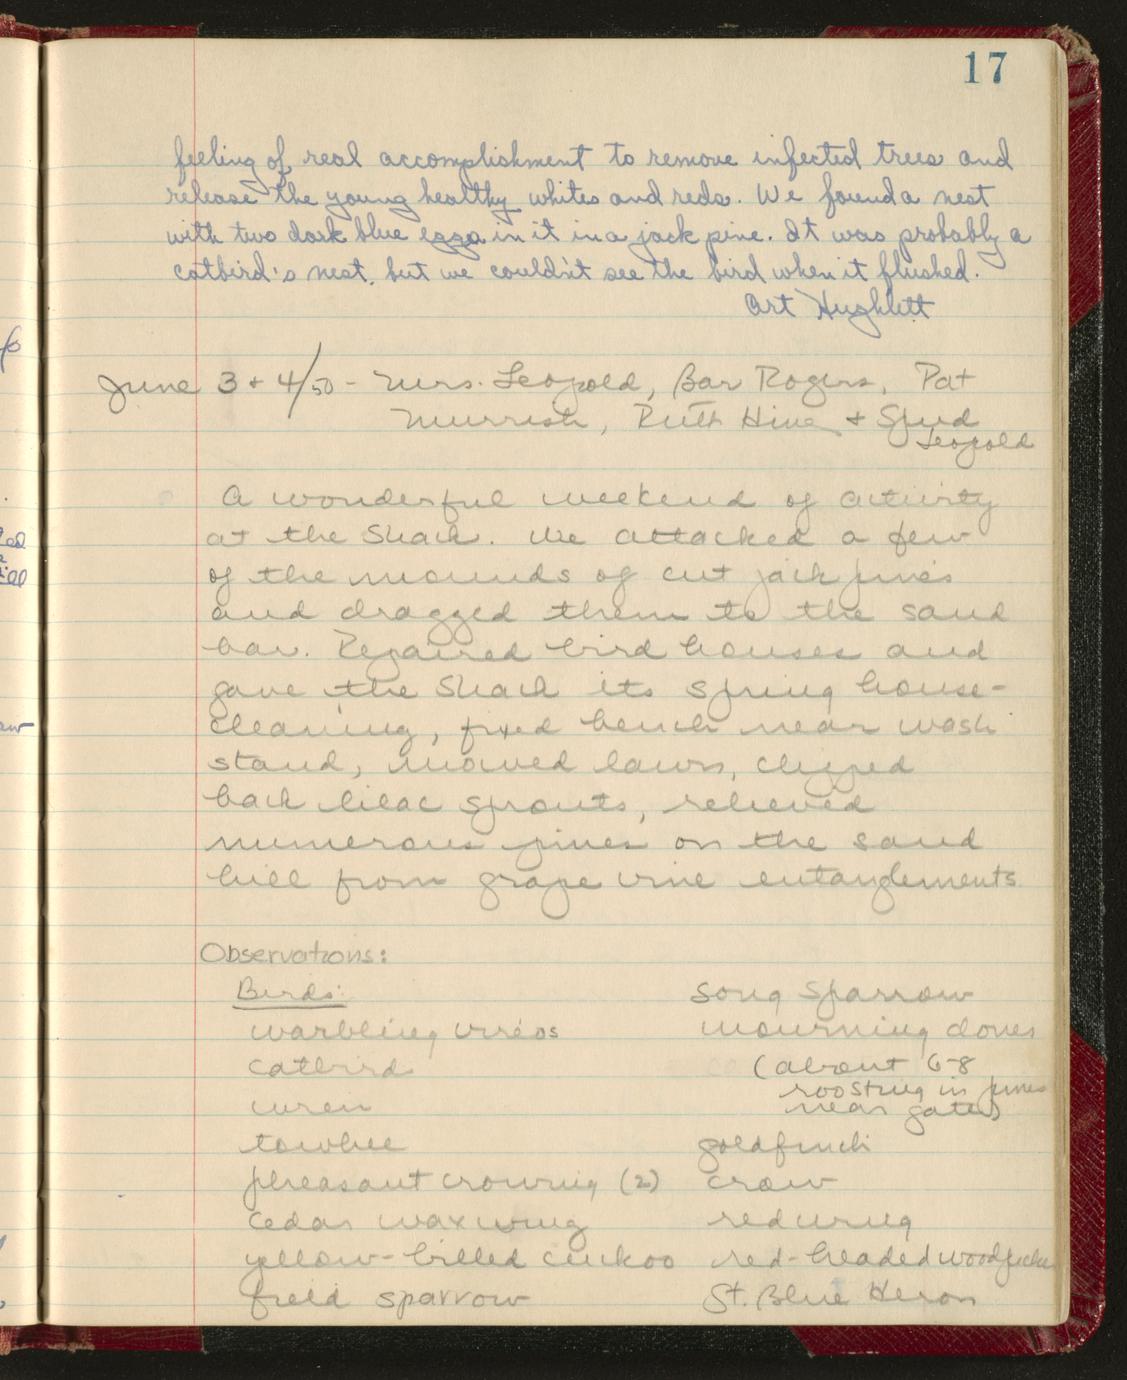 17
feeling of real accomplishment to remove infected trees and
release the young healthy whites and reds. We found a nest
with two dark blue eggs in it in a jack pine. It was probably a
catbird's nest, but we couldn't see the bird when it flushed.
Art Hughlett
June 3 + 4/50 - Mrs. Leopold, Bar Rogers, Pat
Murrish, Ruth Hine + Spud
Leopold
A wonderful weekend of activity
at the Shack. We attacked a few
of the mounds of cut jack pines
and dragged them to the sand
bar. Repaired bird houses and
gave the Shack its spring house-
cleaning, fixed bench near wash
stand, mowed lawn, clipped
back lilac sprouts, relieved
numerous pines on the sand
hill from grape vine entanglements
Observations:
Birds:
warbling viréos
catbird
wren
towhee
pheasant crowing (2)
cedar waxwing
yellow-billed cuckoo
field sparrow
song sparrow
mourning doves
(about 6-8
roosting in pines
near gate)
goldfinch
crow
redwing
red-headed woodpecker
Gt. Blue Heron